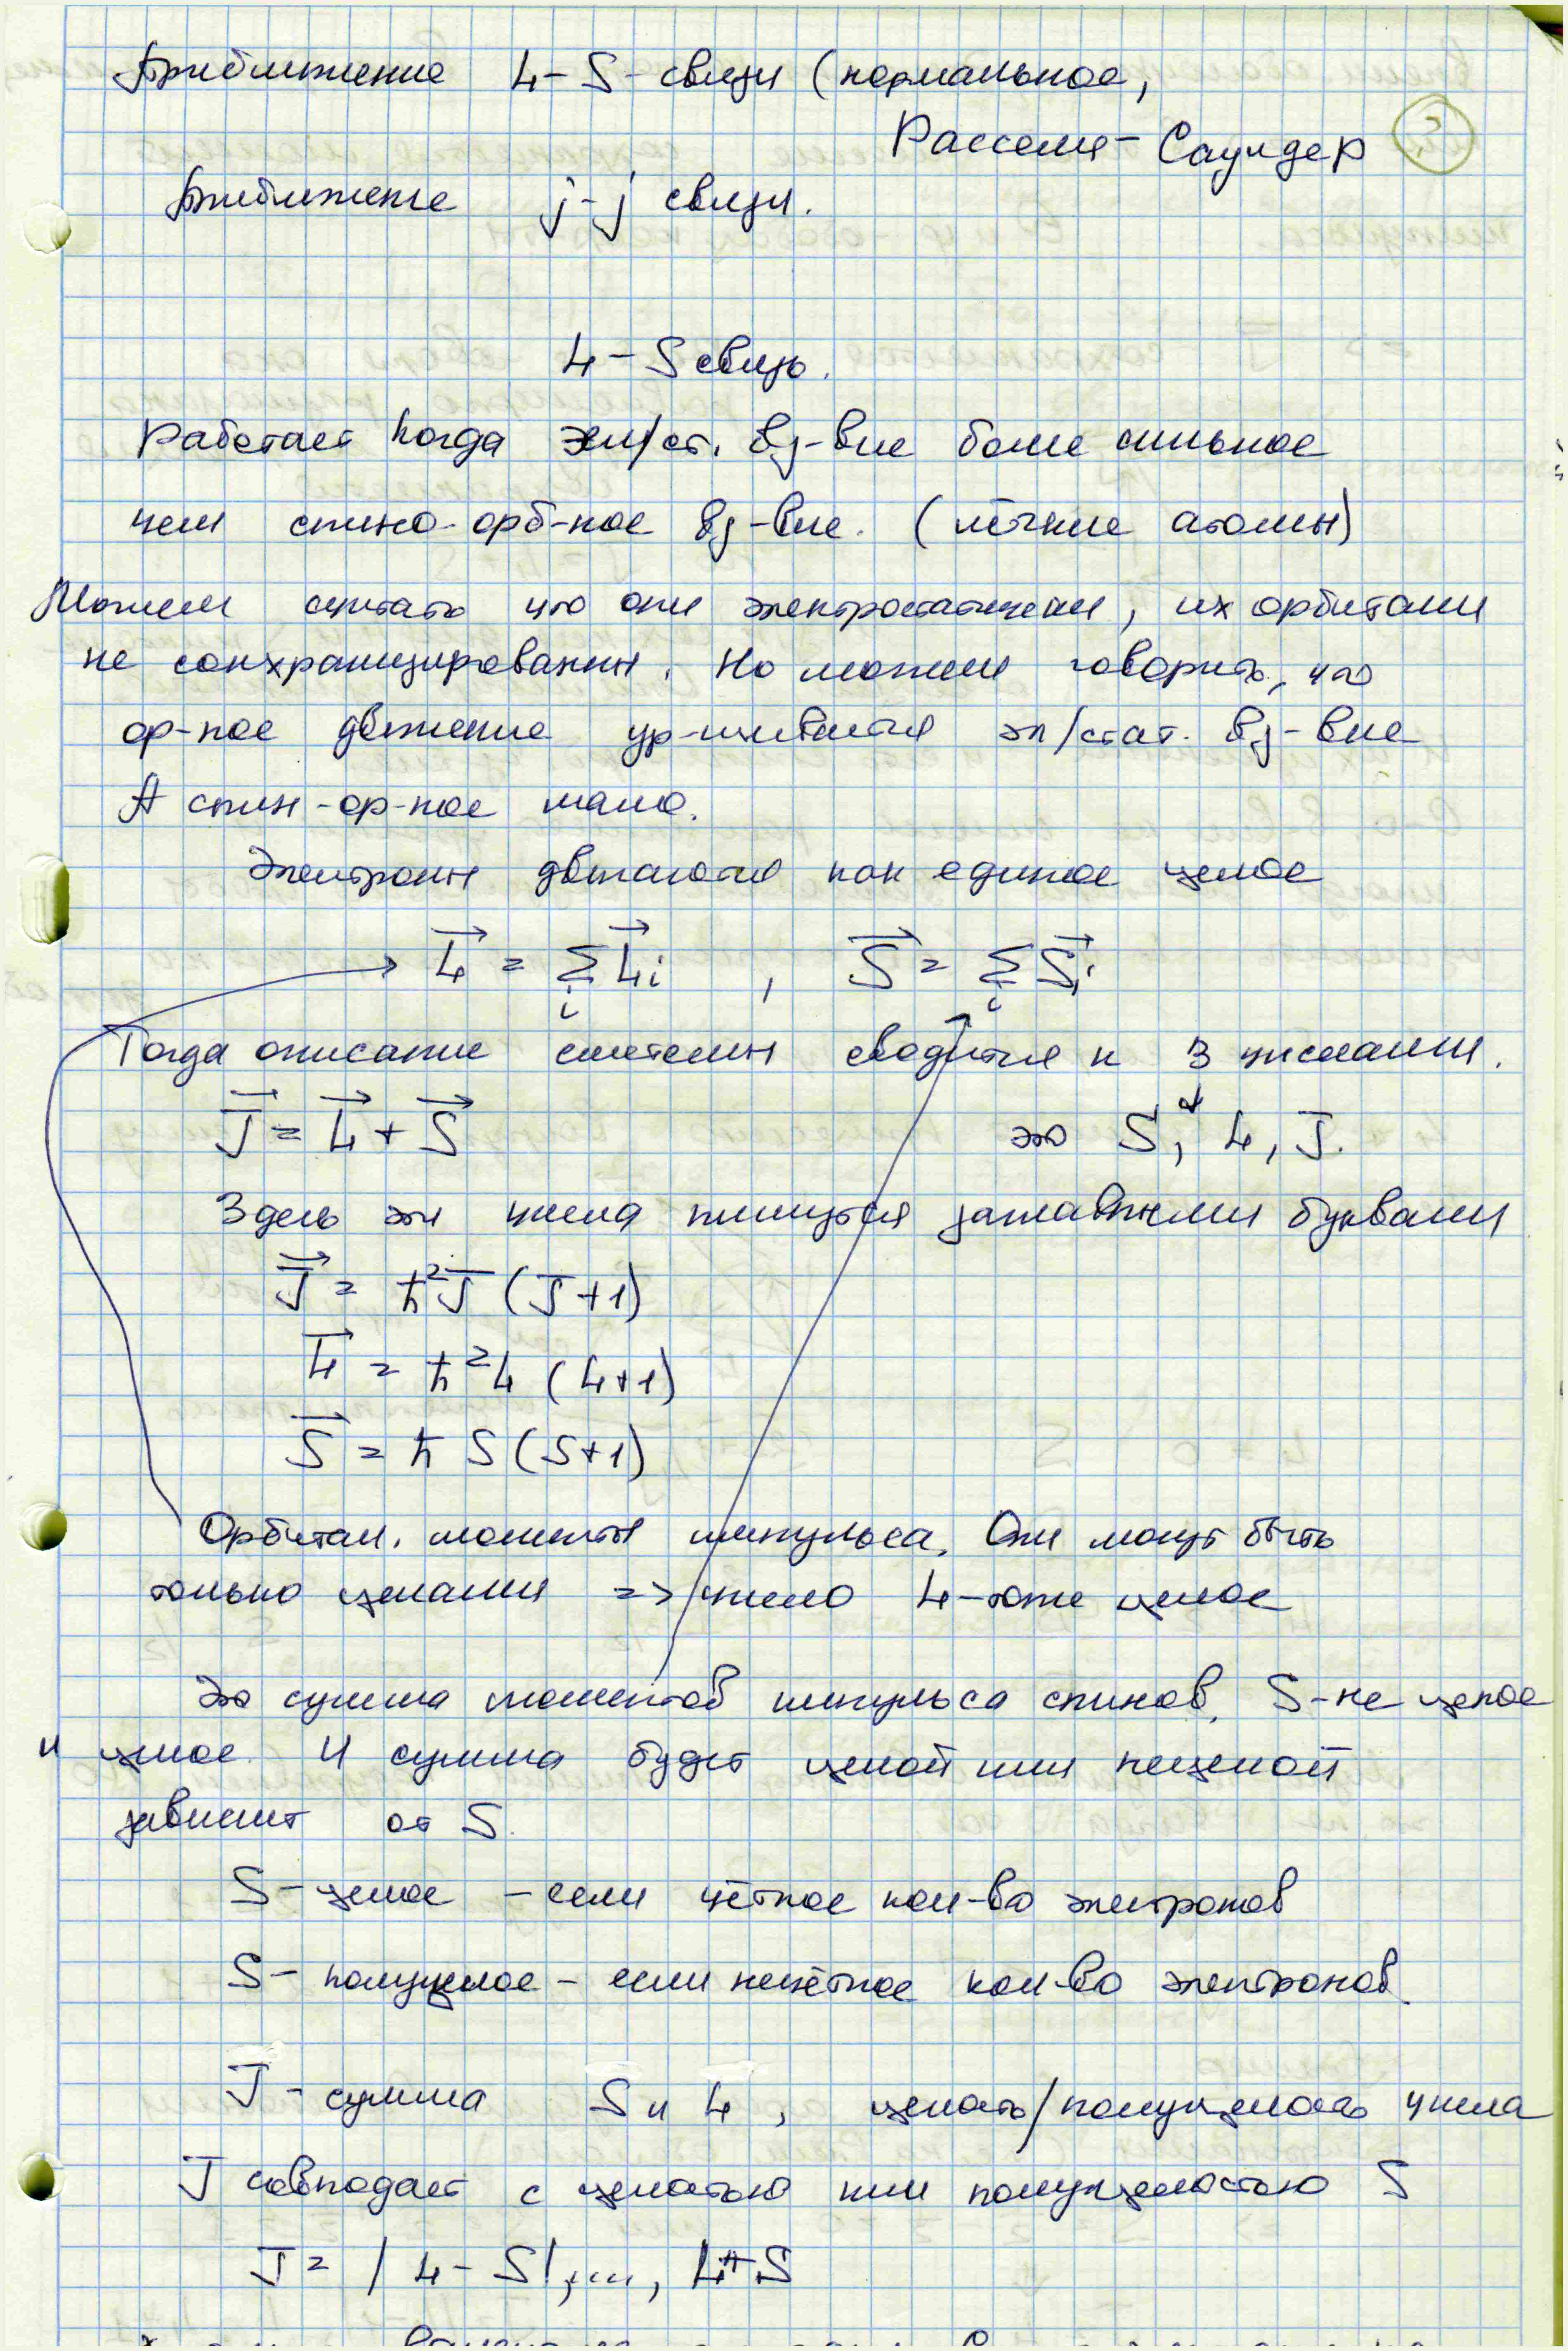 Приближение L-S-связи (нормальное,
Расселя-Саундер
Приближение j-j связи.
L-S связь.
Работает когда эл/ст. вз-вие более сильное
чем спино-орб-ное вз-вие. (лёгкие атомы)
Можем считать что они электростатичеки, их орбитали
не сонхранизированны. Но можем говорить, что
ор-ное движение ур-шивается эл/стат. вз-вие
А спин-ор-ное мало.
Электроны движаются как единое целое
L = Σ Li , S = Σ Si
i i
Тогда описание системы сводится к 3 числам.
J = L + S это S, L, J.
Здесь эти числа пишутся заглавными буквами
J = ħ²J (J+1)
L = ħ²L (L+1)
S = ħ S(S+1)
Орбитал. моменты импульса. Они могут быть
только целыми => число L-тоже целое
Это сумма моментов импульса спинов, S-не целое
и целое. И сумма будет целой или нецелой
зависит от S.
S-целое - если чётное кол-во электронов
S- полуцелое - если нечётное кол-во электронов.
J - сумма S и L, целость/полуцелость числа
J совподает с целостью или полуцелостью S
J = |L - S|,...., L+S